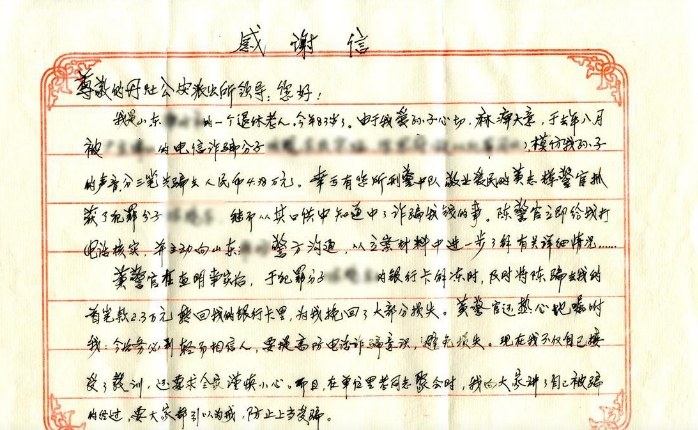 感谢信
尊敬的丹灶公安派出所领导：您好！
我是山东 的一个退休老人，今年83岁了。由于我爱孙子心切，麻痹大意，于去年八月
被 的电信诈骗分子 模仿我孙子
的声音分三笔共骗去人民币4.9万元。幸亏有您所刑警中队敬业爱民的黄志祥警官抓
获了犯罪分子 ，能从其口供中知道中了诈骗我钱的事。陈警官立即给我打
电话核实，并主动向山东 警方沟通，从立案材料中进一步了解有关详细情况……
黄警官在查明事实后，于犯罪分子 的银行卡解冻时，及时将陈 骗去我的
首笔款2.3万元 回我的银行卡里，为我挽回了大部分损失。黄警官还热心地嘱咐
我：今后务必别轻易相信人，要提高防电话诈骗意识，避免损失。现在我不仅自己接
受了教训，还要求全家谨慎小心。而且，在单位里老同志聚会时，我向大家讲了自己被骗
的经过，要大家都引以为戒，防止上当受骗。